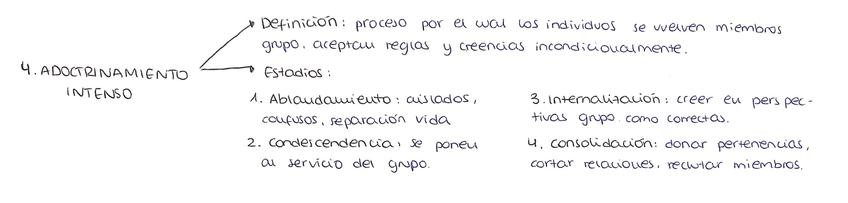 4. ADOCTRINAMIENTO
INTENSO
Definición: proceso por el cual los individuos se vuelven miembros
grupo, aceptan reglas y creencias incondicionalmente.
Estadios:
1. Ablandamiento: aislados,
confusos, separación vida
2. Condescendencia, se ponen
al servicio del grupo.
3. Internalización: creer en perspec-
tivas grupo como correctas.
4. Consolidación: donar pertenencias,
cortar relaciones, reclutar miembros.